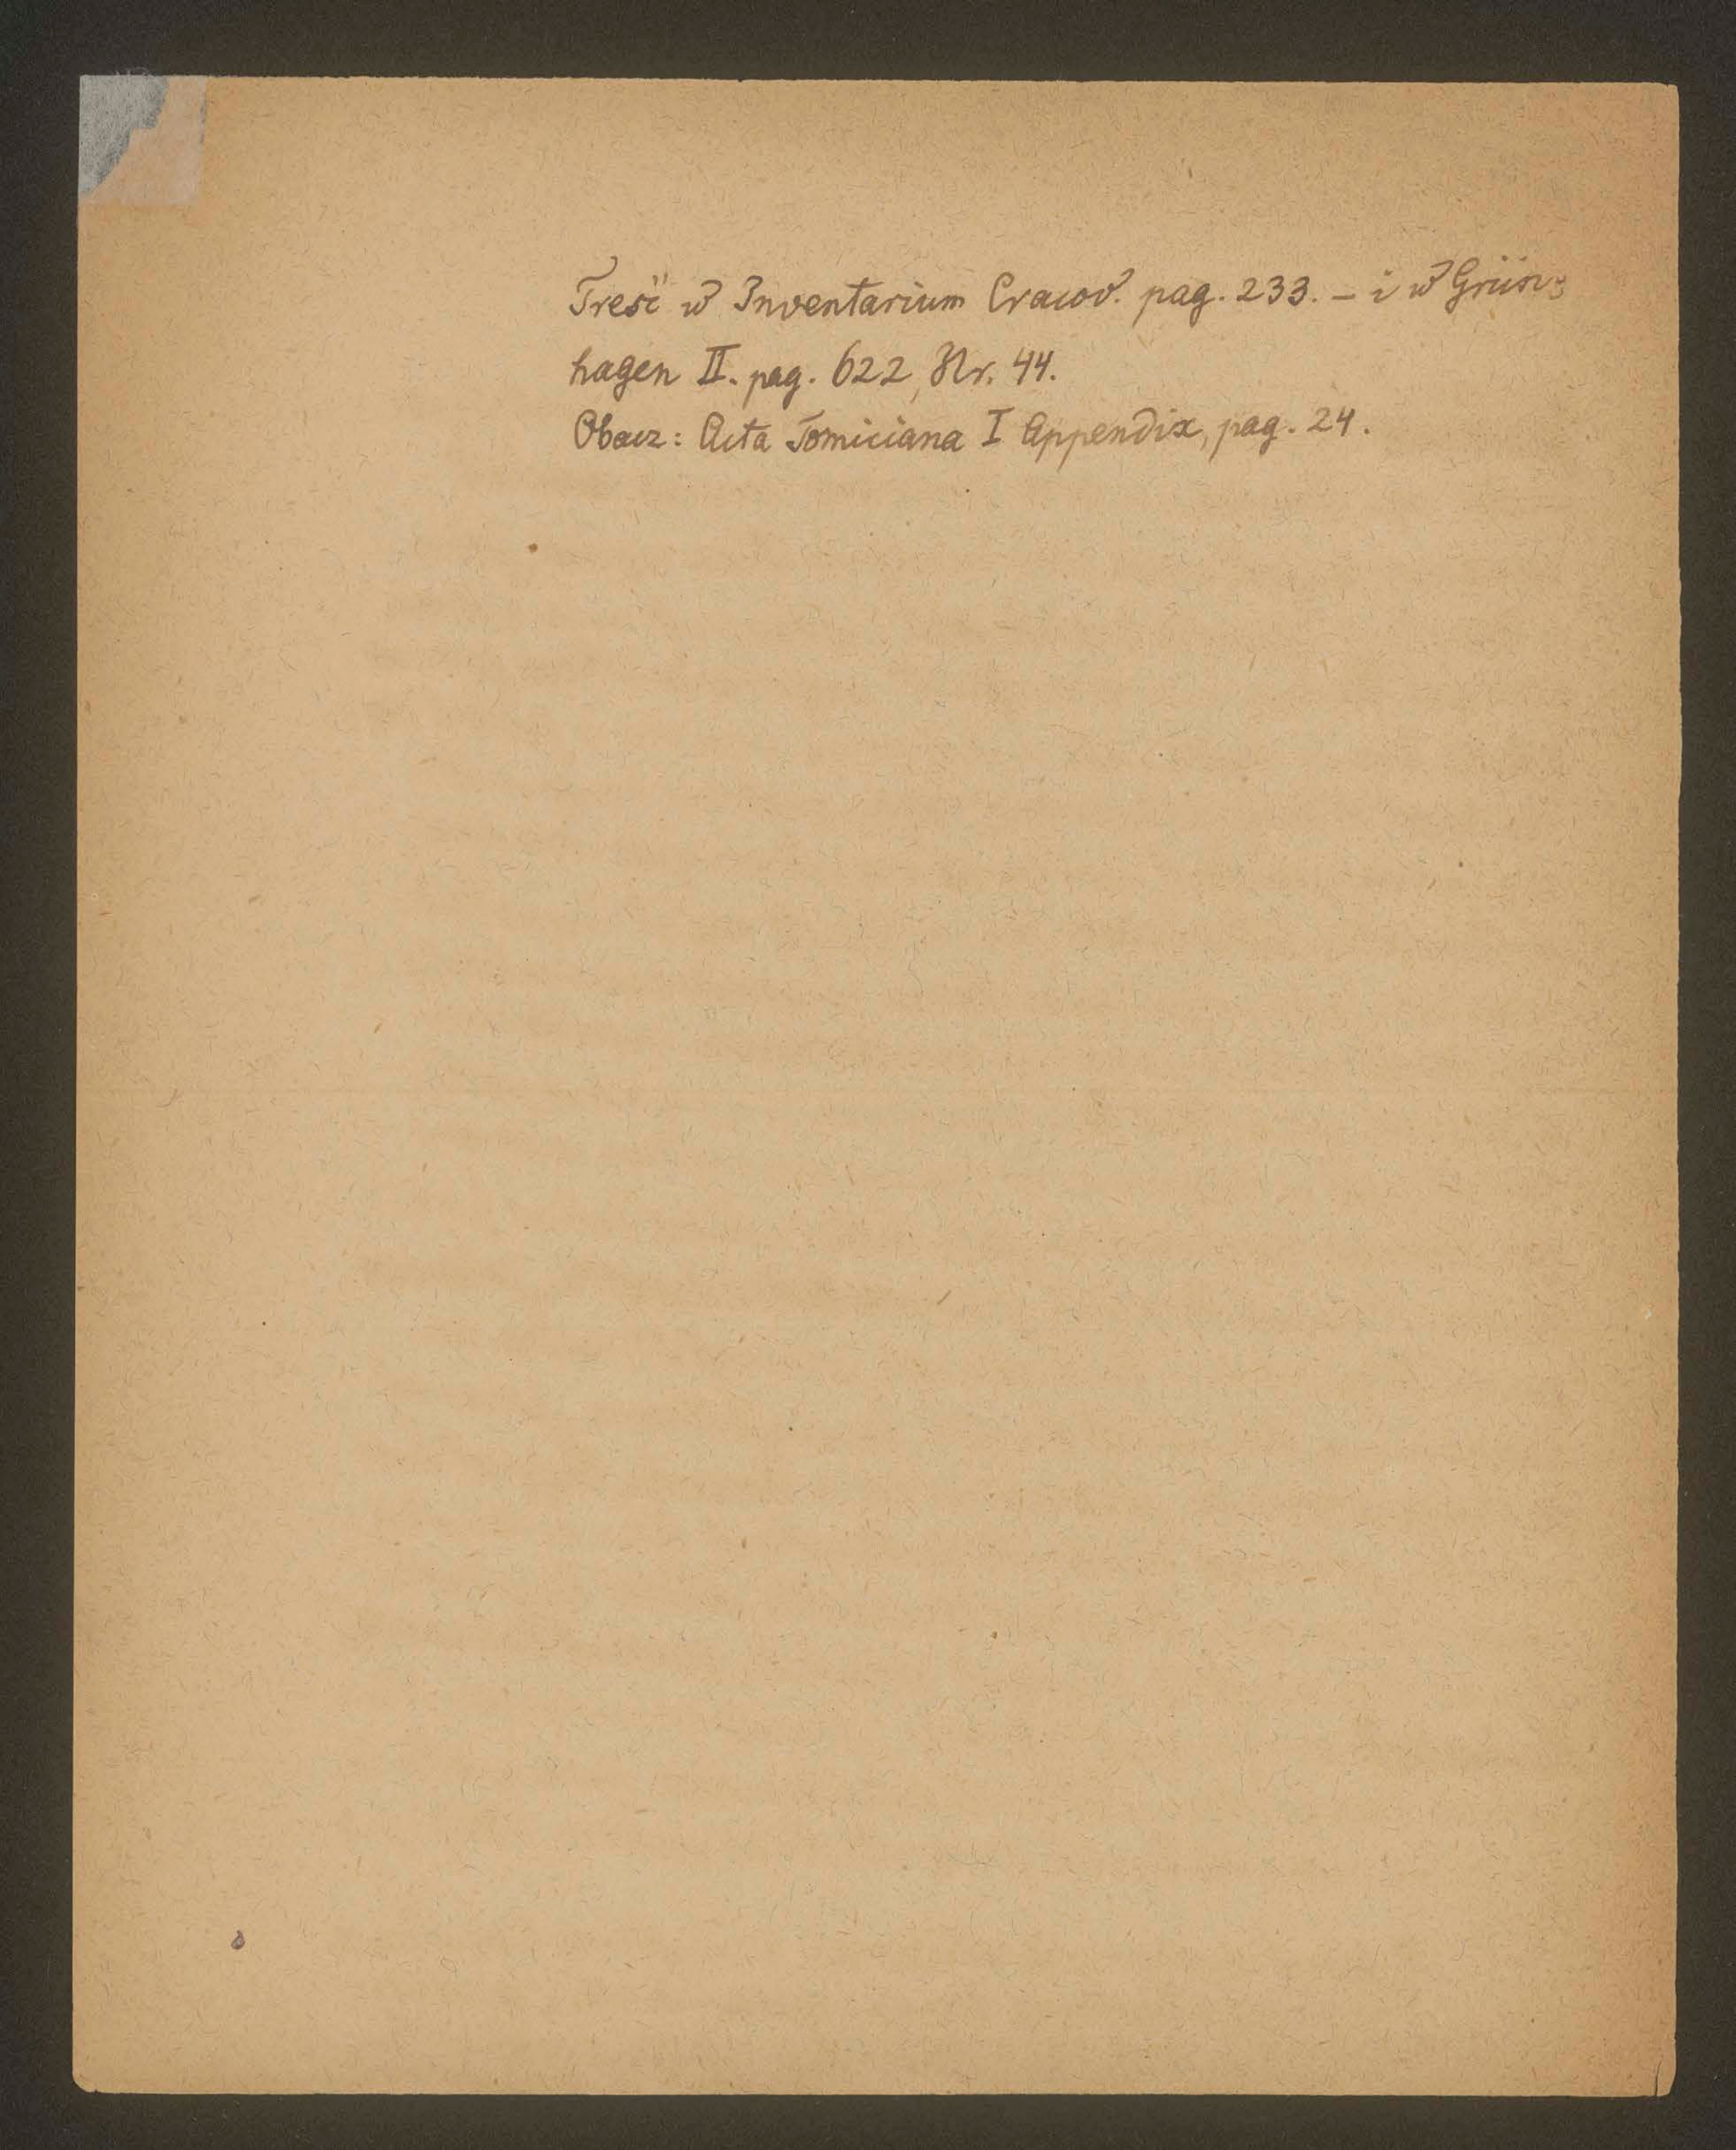 Treść w Inventarium Cracov. pag. 233. – i w Grün-
hagen II. pag. 622, Nr. 44.
Obacz: Acta Tomiciana I Appendix, pag. 24.